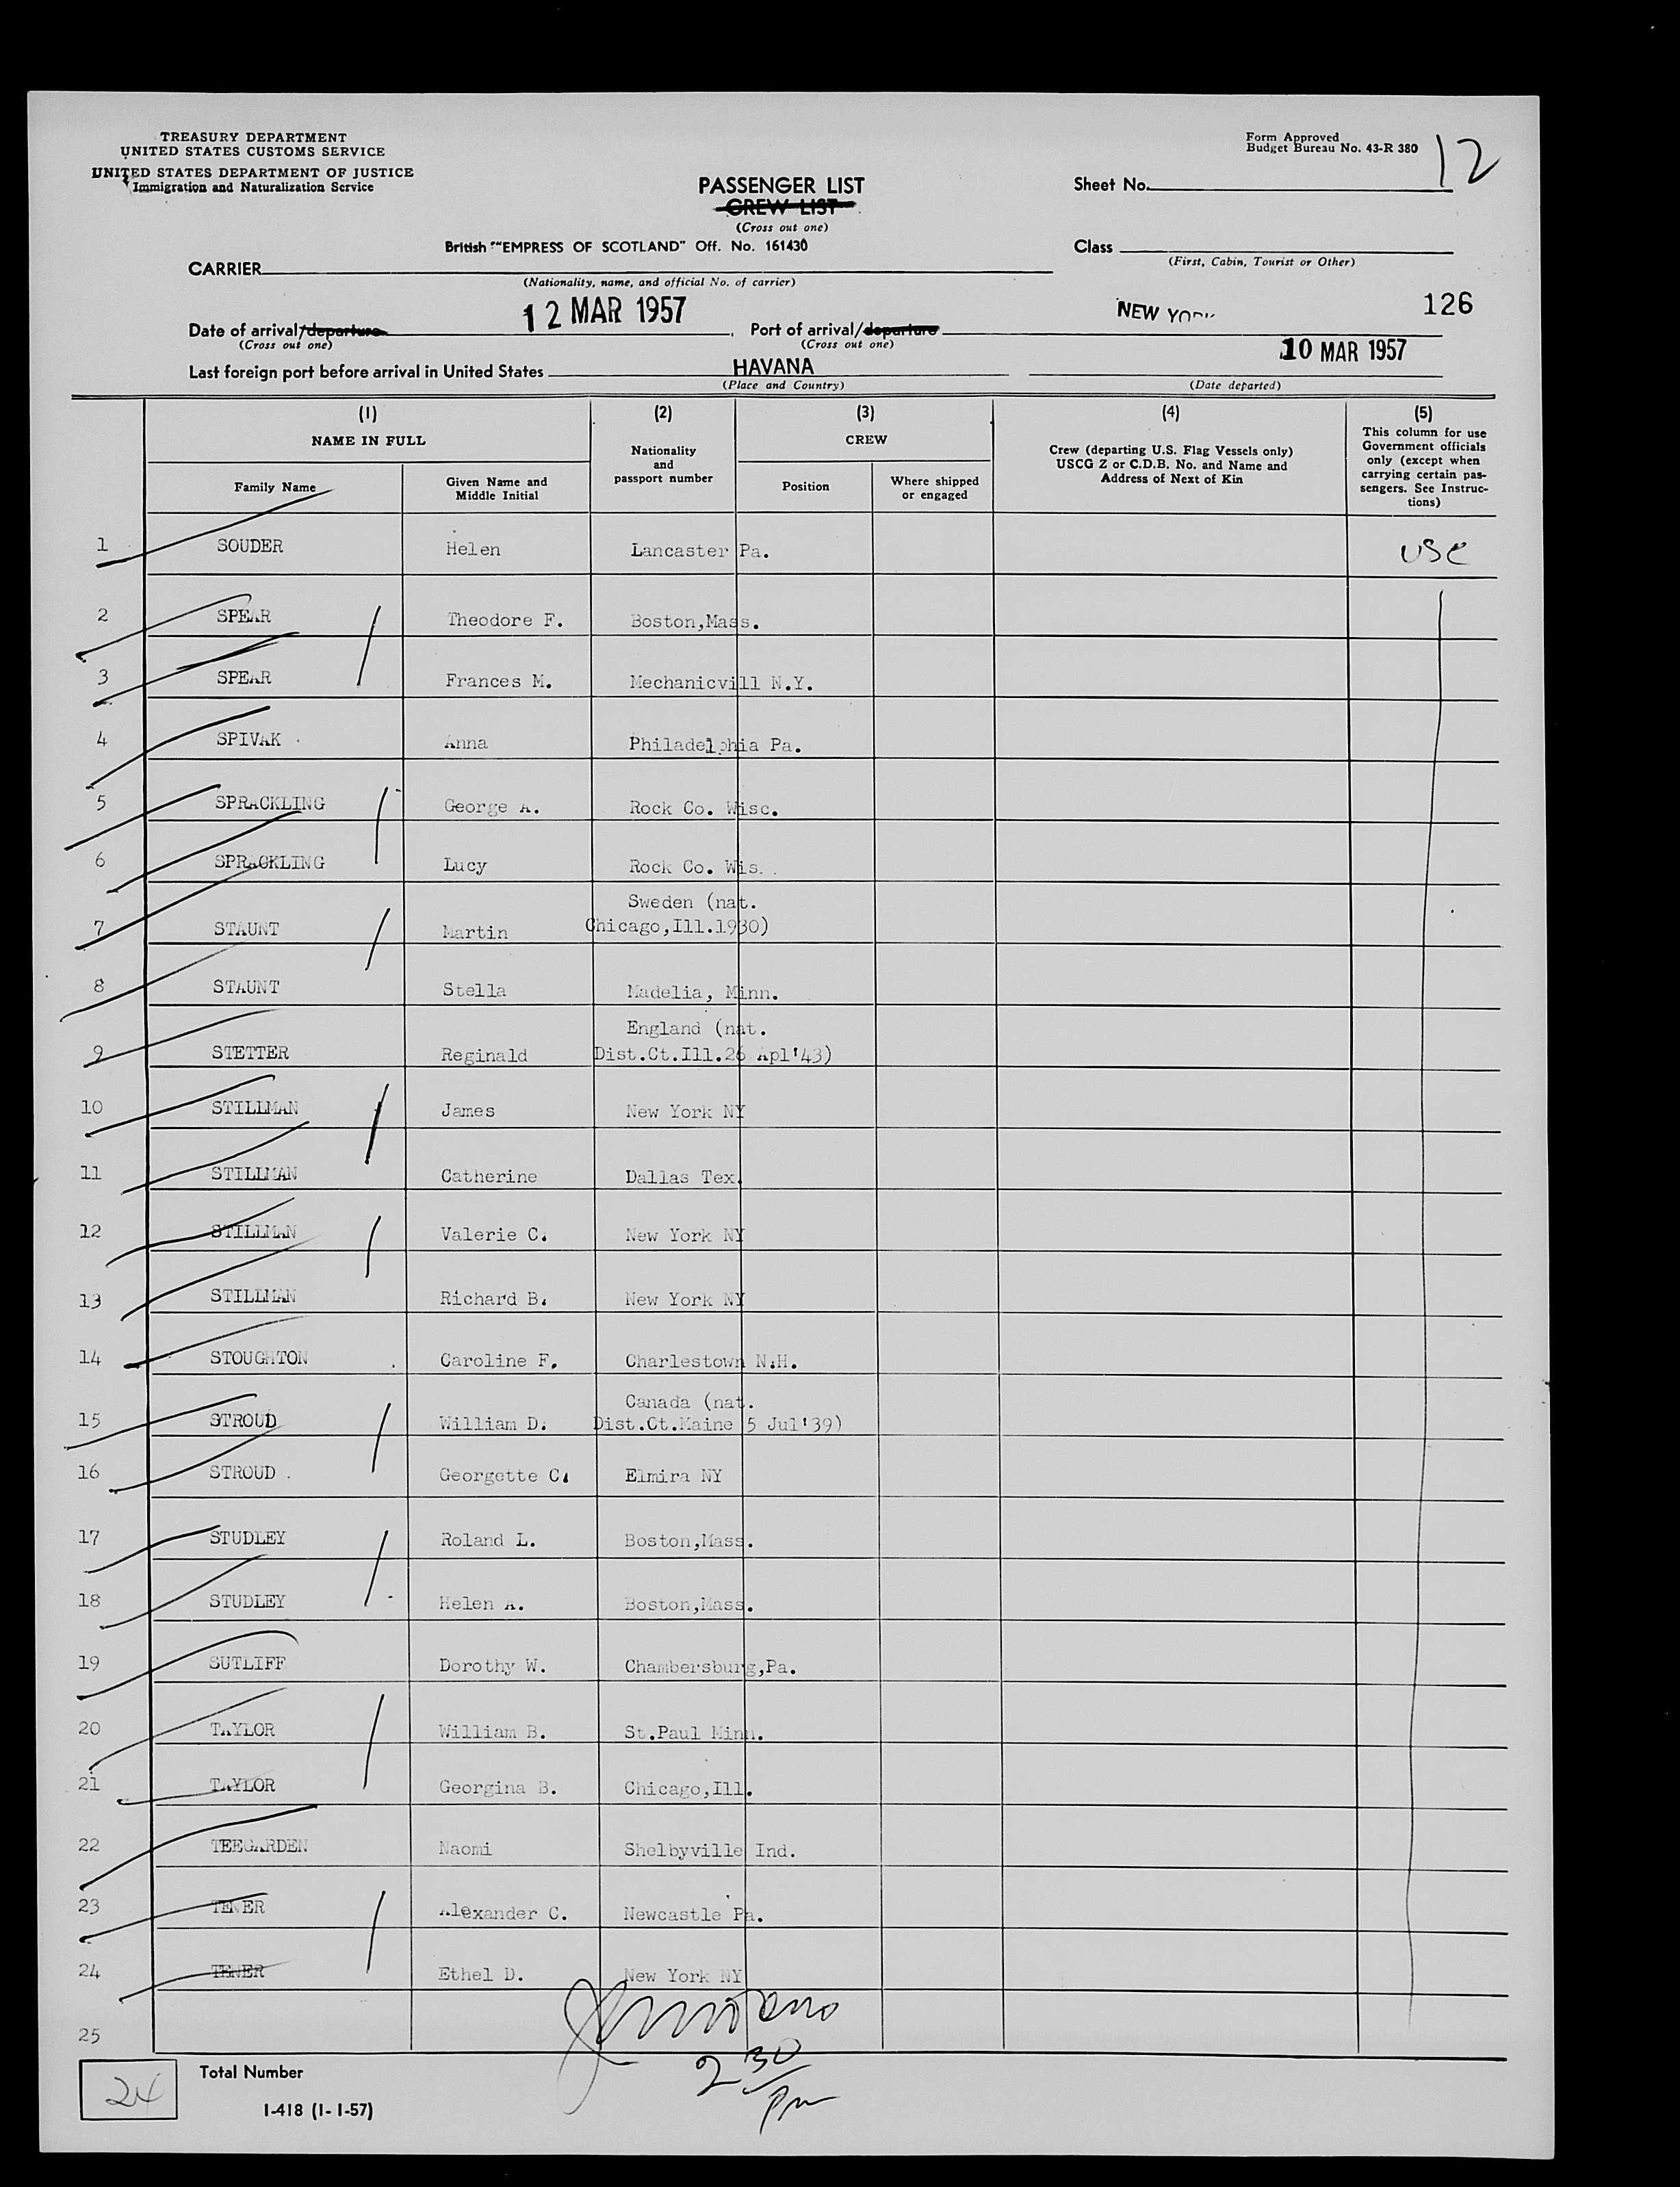 TREASURY DEPARTMENT
UNITED STATES CUSTOMS SERVICE
UNITED STATES DEPARTMENT OF JUSTICE
Immigration and Naturalization Service
Form Approved
Budget Bureau No. 43-R 380
12
PASSENGER LIST
CREW LIST
(Cross out one)
Sheet No.
British "EMPRESS OF SCOTLAND" Off. No. 161430
Class
(First, Cabin, Tourist or Other)
CARRIER
(Nationality, name, and official No. of carrier)
12 MAR 1957
NEW YORK
126
Date of arrival/departure
(Cross out one)
Port of arrival/departure
(Cross out one)
10 MAR 1957
Last foreign port before arrival in United States HAVANA
(Place and Country)
(Date departed)
(1) (2) (3) (4) (5)
NAME IN FULL
Nationality
and
passport number
CREW
Crew (departing U.S. Flag Vessels only)
USCG Z or C.D.B. No. and Name and
Address of Next of Kin
This column for use
Government officials
only (except when
carrying certain pas-
sengers. See Instruc-
tions)
Family Name
Given Name and
Middle Initial
Position
Where shipped
or engaged
1 SOUDER Helen Lancaster Pa. USC
2 SPEAR Theodore F. Boston,Mass.
3 SPEAR Frances M. Mechanicvill N.Y.
4 SPIVAK Anna Philadelphia Pa.
5 SPRACKLING George A. Rock Co. Wisc.
6 SPRACKLING Lucy Rock Co. Wis.
Sweden (nat.
7 STAUNT Martin Chicago,Ill.1930)
8 STAUNT Stella Madelia, Minn.
England (nat.
9 STETTER Reginald Dist.Ct.Ill.26 Apl'43)
10 STILLMAN James New York NY
11 STILLMAN Catherine Dallas Tex.
12 STILLMAN Valerie C. New York NY
13 STILLMAN Richard B. New York NY
14 STOUGHTON Caroline F. Charlestown N.H.
Canada (nat.
15 STROUD William D. Dist.Ct.Maine 5 Jul'39)
16 STROUD Georgette C. Elmira NY
17 STUDLEY Roland L. Boston,Mass.
18 STUDLEY Helen A. Boston,Mass.
19 SUTLIFF Dorothy W. Chambersburg,Pa.
20 TAYLOR William B. St.Paul Minn.
21 TAYLOR Georgina B. Chicago,Ill.
22 TEEGARDEN Naomi Shelbyville Ind.
23 TENER Alexander C. Newcastle Pa.
24 TENER Ethel D. New York NY
25
2 30
pm
24
Total Number
I-418 (1-1-57)